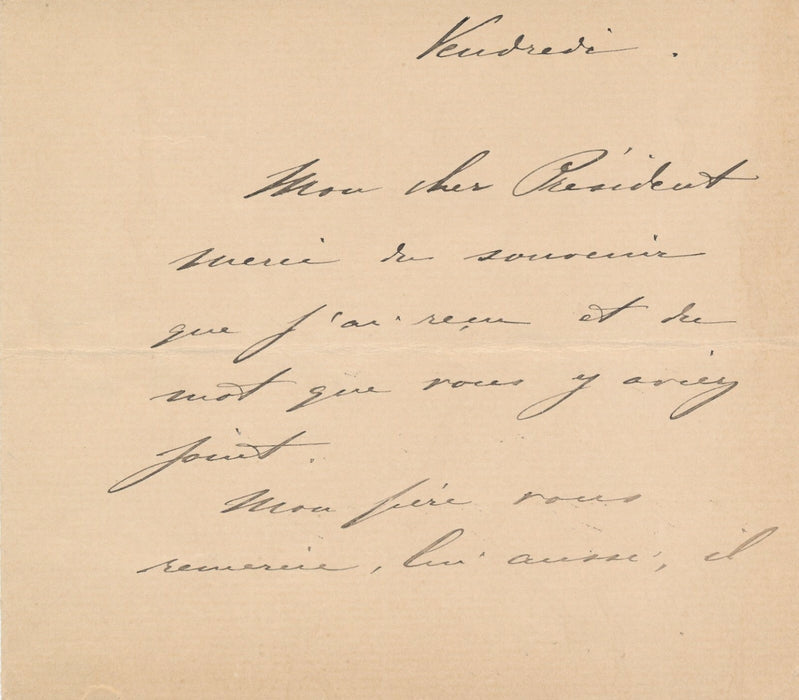 Vendredi.
Mon cher Président
merci du souvenir
que j'ai reçu et du
mot que vous y aviez
joint.
Mon père vous
remercie, lui aussi, il